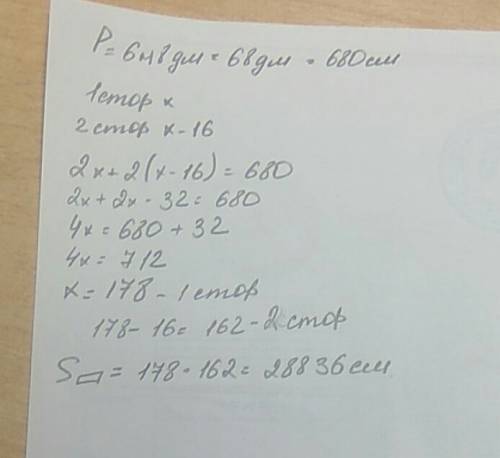 P = 6м 8дм = 68дм = 680см
1 стор x
2 стор x - 16
2x + 2(x - 16) = 680
2x + 2x - 32 = 680
4x = 680 + 32
4x = 712
x = 178 - 1 стор
178 - 16 = 162 - 2 стор
S▱ = 178 · 162 = 28836 см